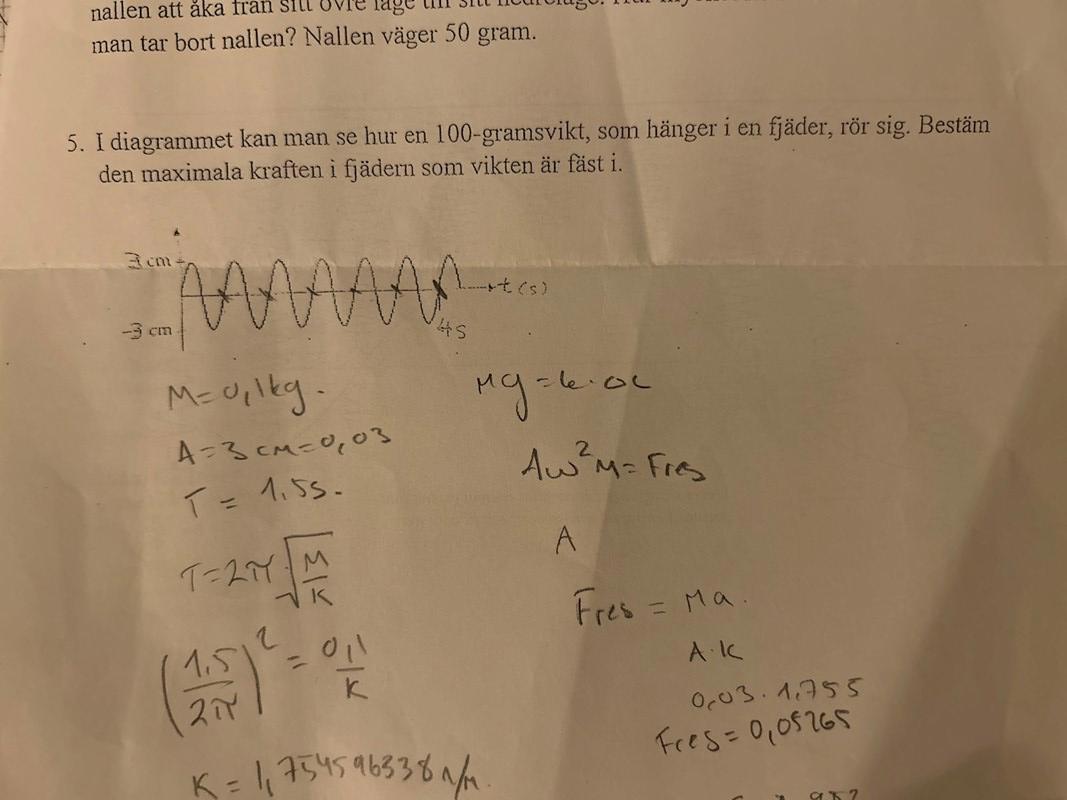 nallen att åka från sitt övre läge till sitt
man tar bort nallen? Nallen väger 50 gram.
5. I diagrammet kan man se hur en 100-gramsvikt, som hänger i en fjäder, rör sig. Bestäm
den maximala kraften i fjädern som vikten är fäst i.
3 cm
t (s)
-3 cm
4s
M=0,1kg.
Mg=k·
A=3cm=0,03
Aω²M=Fres
T = 1.5s.
A
T=2π√(M/K)
Fres = Ma.
A·K
(1.5/2π)² = 0,1/K
0,03·1,755
Fres=0,05265
K = 1,754596338 N/M.